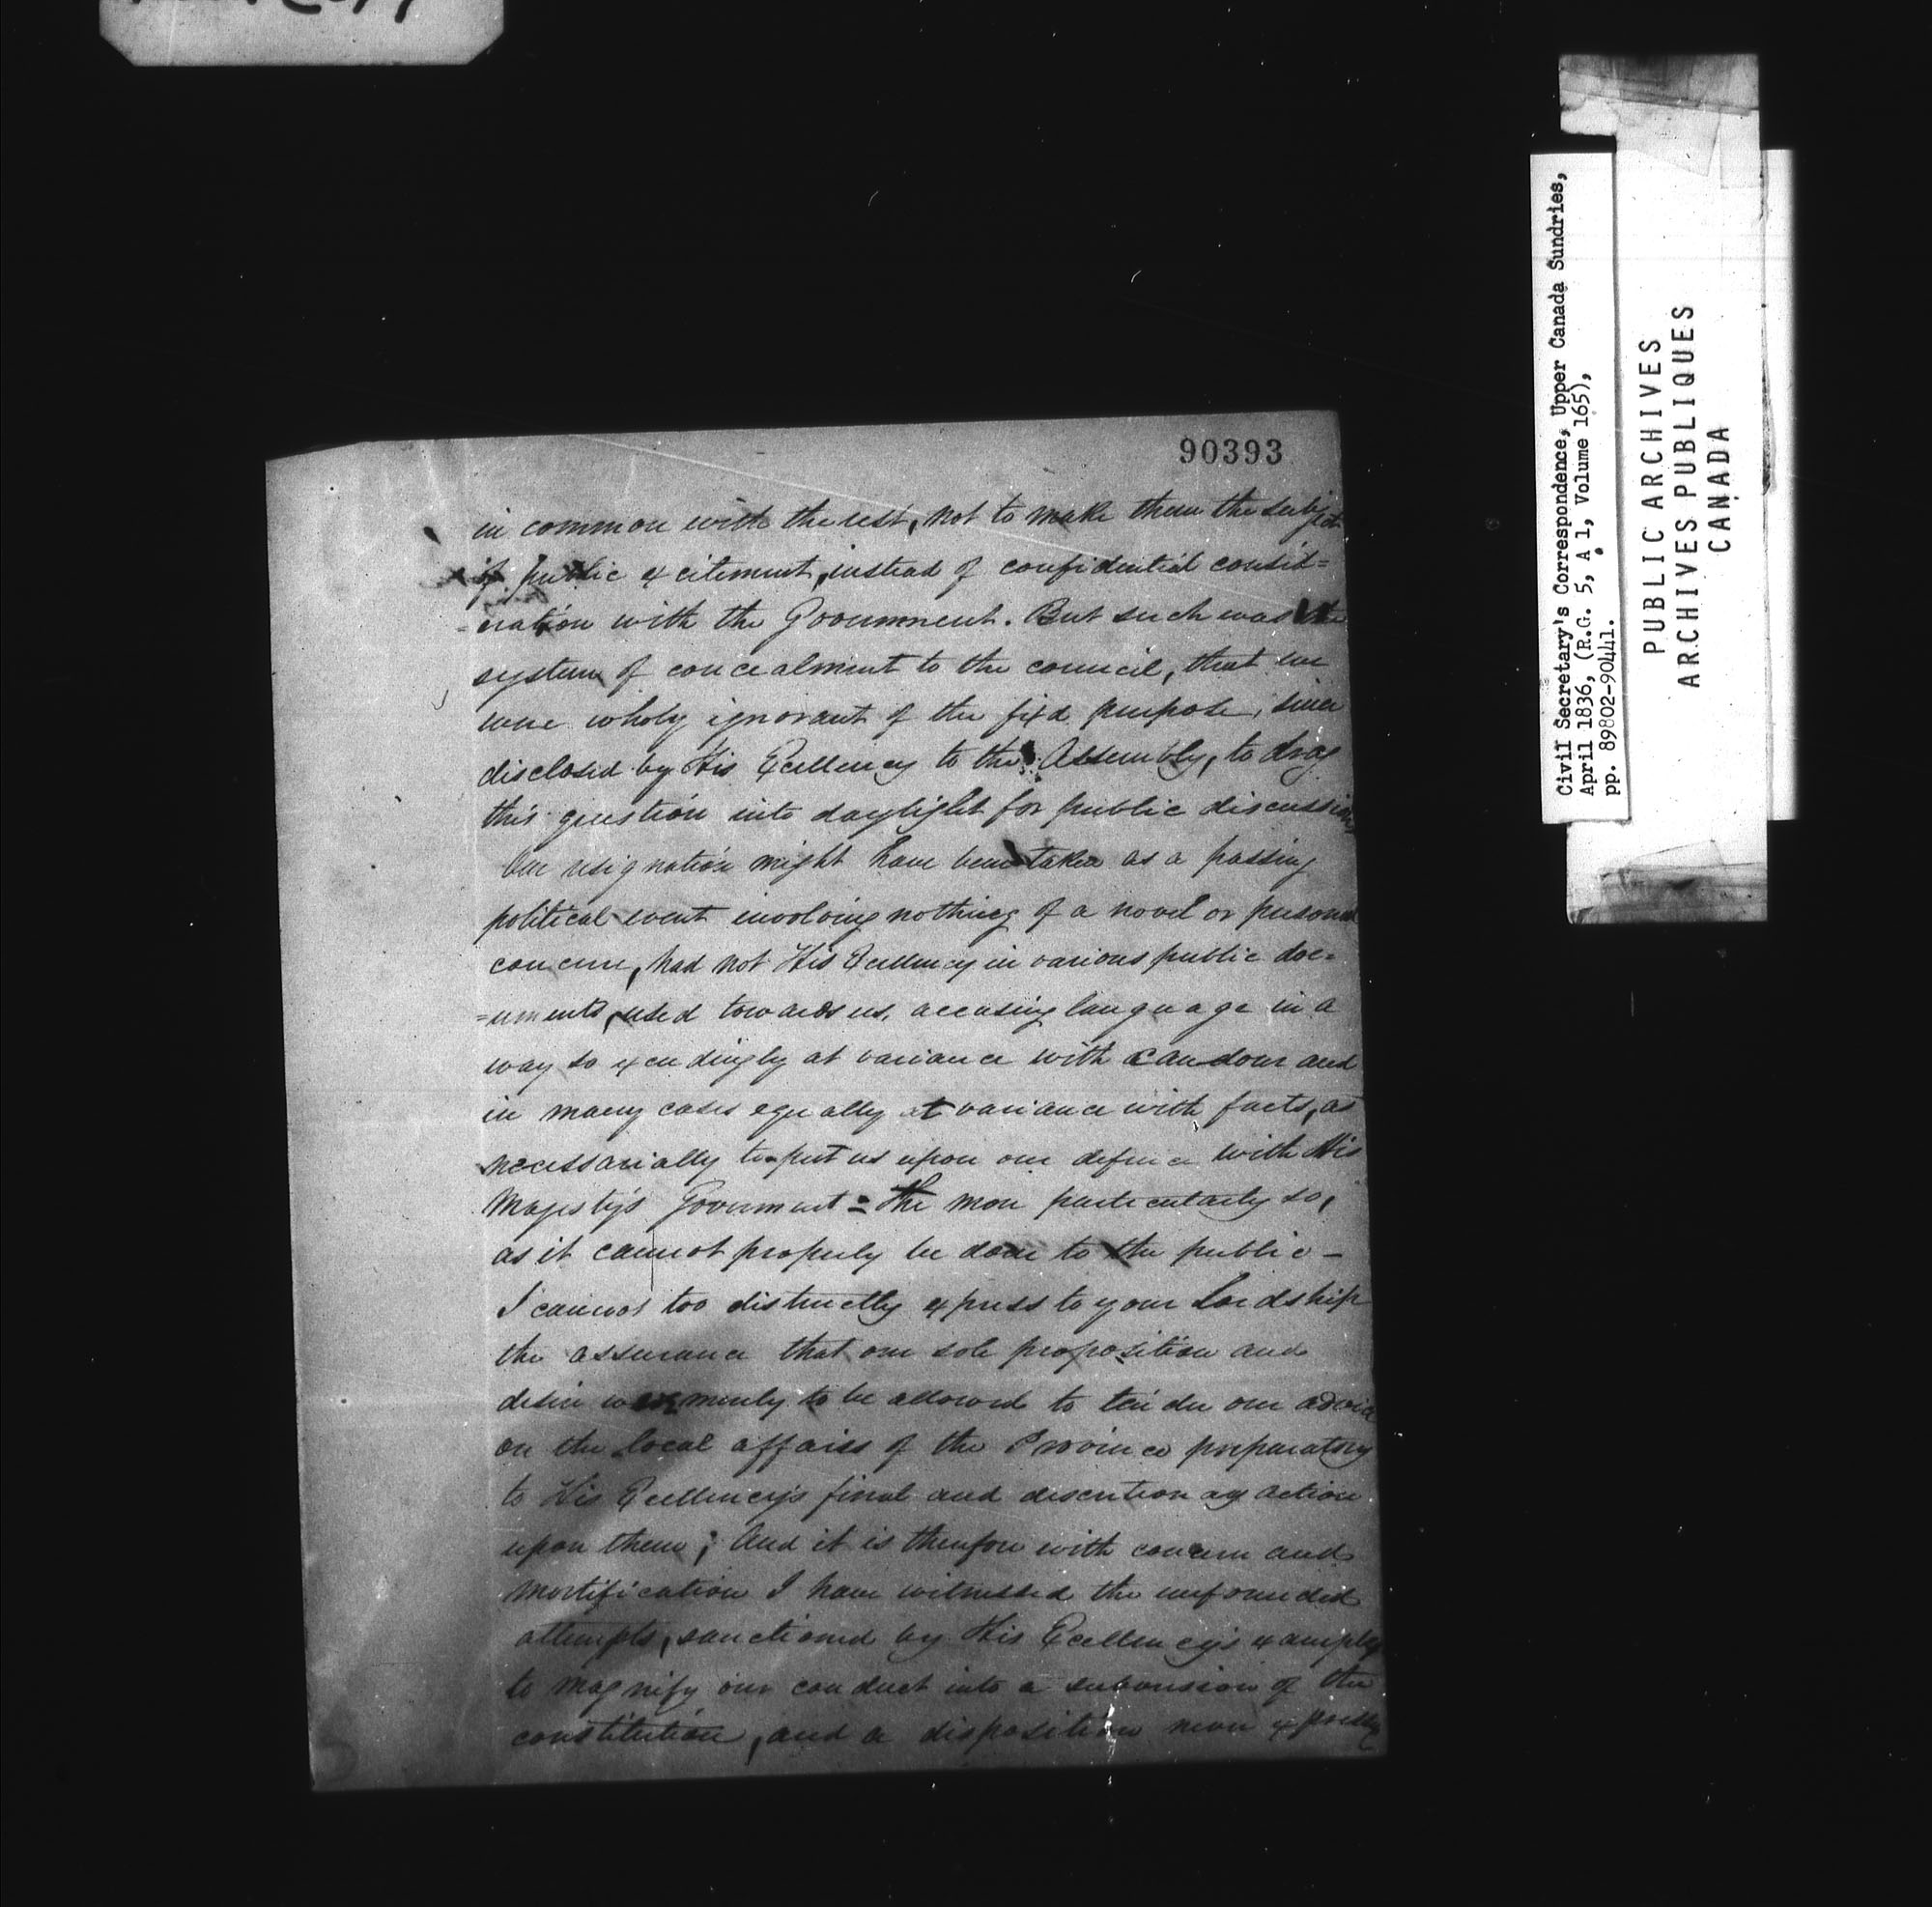 90393
in common with the rest, not to make them the subject
of public excitement, instead of confidential consid=
=eration with the Government. But such was the
system of concealment to the council, that we
were wholy ignorant of the fixd purpose, since
disclosed by His Excellency to the Assembly, to drag
this question into daylight for public discussion
Our resignation might have been taken as a passing
political event involving nothing of a novel or personal
concern, had not His Excellency in various public doc=
=uments, used towards us, accusing language in a
way so exceedingly at variance with candour and
in many cases equally at variance with facts, as
necessarially to put us upon our defence with His
Majesty's Government = the more particularly so,
as it cannot properly be done to the public -
I cannot too distinctly express to your Lordship
the assurance that our sole proposition and
desire was merely to be allowed to tender our advice
on the local affairs of the Province preparatory
to His Excellency's final and discretionary action
upon them; And it is therefore with concern and
mortification I have witnessed the unfounded
attempts, sanctioned by His Excellency's example
to magnify our conduct into a subversion of the
constitution, and a disposition never expressly
Civil Secretary's Correspondence, Upper Canada Sundries,
April 1836, (R.G. 5, A 1, Volume 165),
pp. 89802-90441.
PUBLIC ARCHIVES
ARCHIVES PUBLIQUES
CANADA